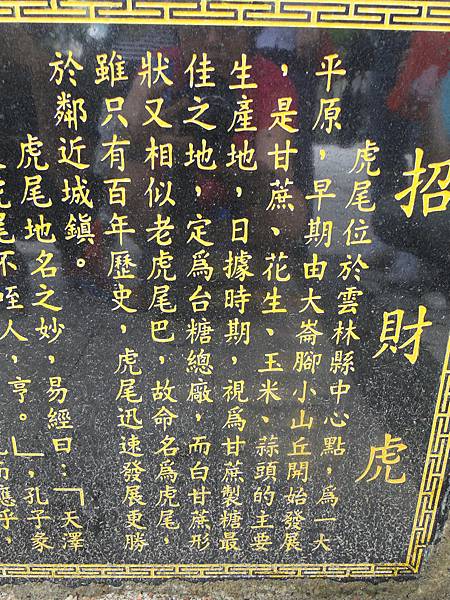 招財虎
虎尾位於雲林縣中心點，為一大
平原，早期由大崙腳小山丘開始發展
，是甘蔗、花生、玉米、蒜頭的主要
生產地，日據時期，視為甘蔗製糖最
佳之地，定為台糖總廠，而白甘蔗形
狀又相似老虎尾巴，故命名為虎尾，
雖只有百年歷史，虎尾迅速發展更勝
於鄰近城鎮。
虎尾地名之妙，易經曰：「天澤
虎尾不咥人，亨。」，孔子象
而應乎，